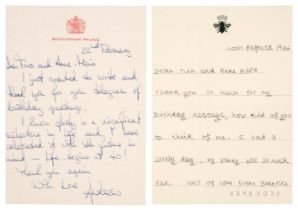 BUCKINGHAM PALACE
22nd February
Dear Tino and Anne Marie
I just wanted to write and
thank you for your telegram of
birthday greetings.
I know forty is a significant
milestone in life and I have
celebrated it with the future in
mind - life begins at 40!
Thank you again
With Love
Andrew
20th August 1996
Dear Tino and Anne Marie
Thank you so much for my
Birthday message, how kind of you
to think of me. I had a
lovely day, my party was so much
fun. Lots of love from Beatrice
xoxoxoxo